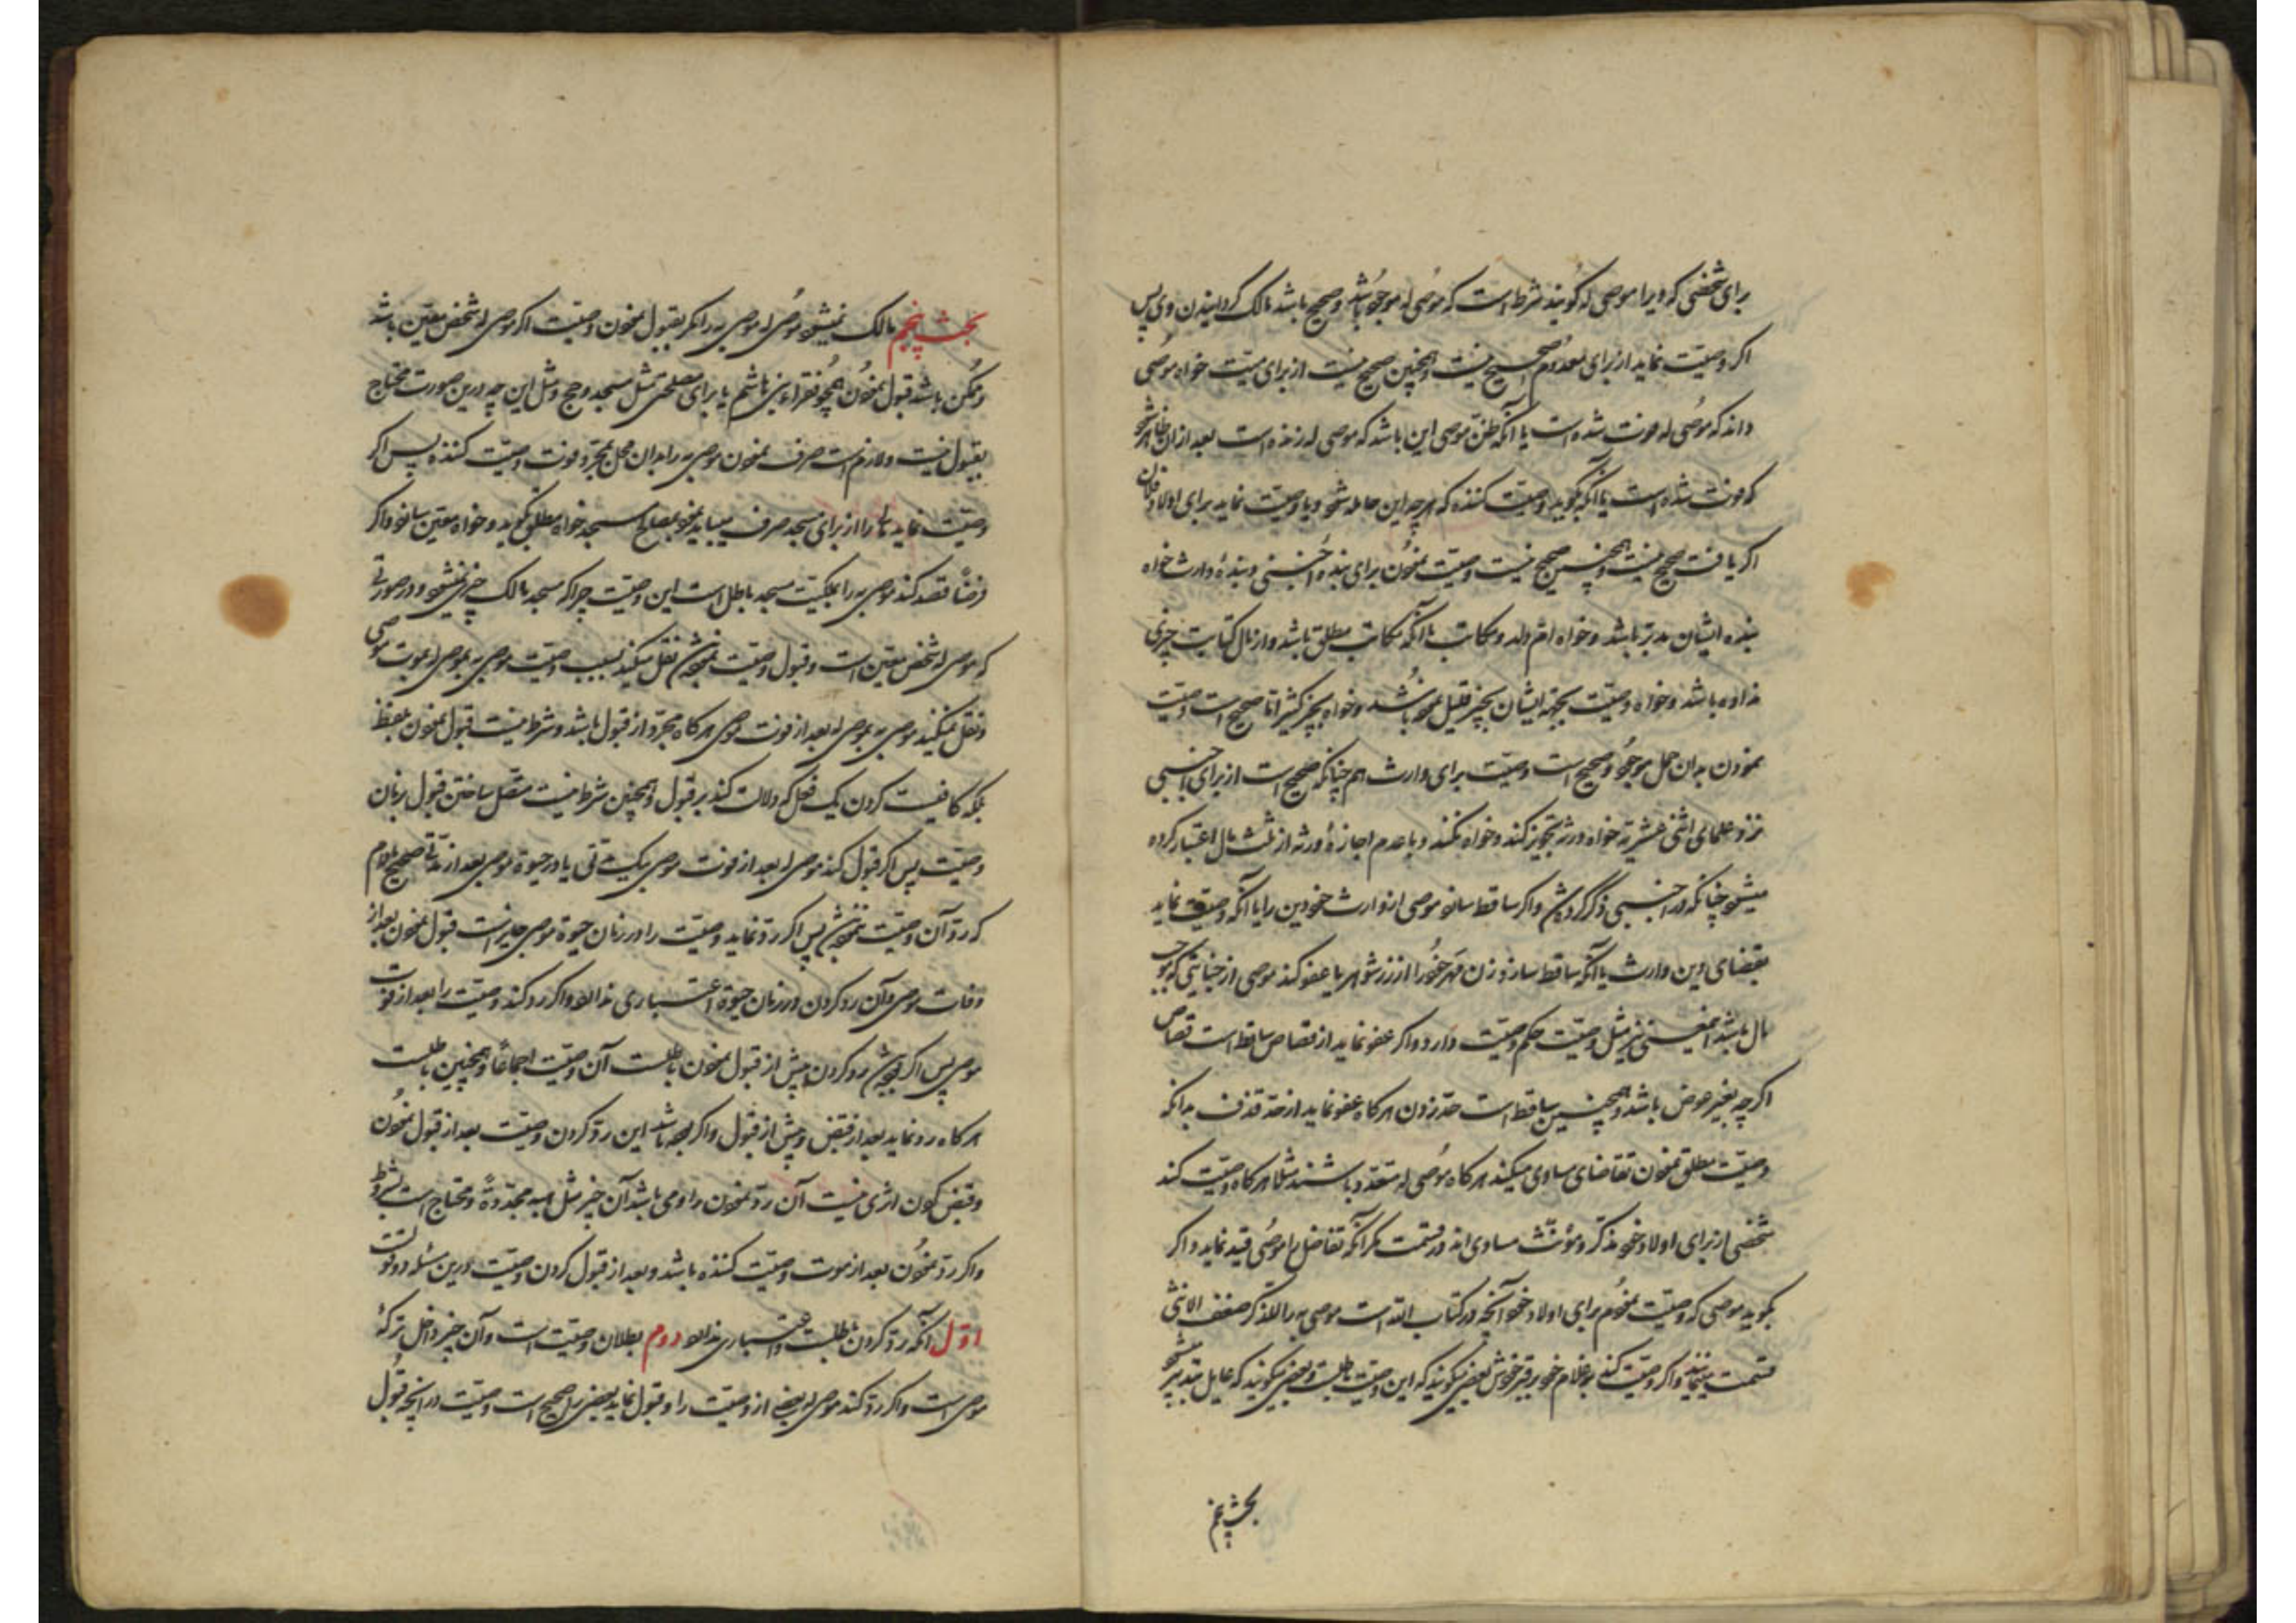 برای شخصی که ویرا موصی له گویند شرط است که موصی له موجود باشد و صحیح باشد مالک گردانیدن وی پس
اگر وصیت نماید از برای معدوم صحیح نیست و همچنین صحیح نیست از برای میت خواه موصی
داند که موصی له فوت شده است یا آنکه ظن موصی این باشد که موصی له زنده است بعد ازان ظاهر شود
که فوت شده است یا آنکه بگوید وصیت کننده که هر چه این حامله شود و یا وصیت نماید برای اولاد فلان
اگر یافت صحیح نیست و همچنین صحیح نیست وصیت نمودن برای بنده اجنبی و بندهٔ وارث خواه
بنده ایشان مدبر باشد و خواه ام ولد و مکاتب یا آنکه مکاتب مطلق باشد و از مال کتابت چیزی
نداده باشد و خواه وصیت بجهة ایشان بچیز قلیل نموده باشد و خواه بچیز کثیر اما صحیح است وصیت
نمودن بدان حمل موجود و صحیح است وصیت برای وارث هم چنانکه صحیح است از برای اجنبی
نزد علمای اثنی عشریه خواه ورثه تجویز کند و خواه نکنند و با عدم اجازهٔ ورثه از ثلث مال اعتبار کرده
میشود چنانکه در اجنبی ذکر کرده شد و اگر ساقط سازد موصی از وارث خود دین را یا آنکه وصیت نماید
بقضای دین وارث یا آنکه ساقط سازد زن مهر خود را از شوهر یا عفو کند موصی از جنایتی که موجب
مال باشد اینمعنی نیز مثل وصیت حکم وصیت دارد و اگر عفو نماید از قصاص ساقط است قصاص
اگر چه بغیر عوض باشد و همچنین ساقط است حد زدن هر گاه عفو نماید از حد قذف بدانکه
وصیت مطلق نمودن تقاضای مساوی میکند هر گاه موصی له متعدد باشند مثلا هر گاه وصیت کند
شخصی از برای اولاد خود مذکر و مؤنث مساوی اند در قسمت مگر آنکه تفاضل را موصی قید نماید و اگر
بگوید موصی که وصیت نمودم برای اولاد خود آنچه در کتاب الله است موصی به را للذکر ضعف الانثی
قسمت مینمایند و اگر وصیت کند بغلام خود برقبه خودش بعضی میگویند که این وصیت باطلست و بعضی میگویند که عایل بتدبیر میشود
بحث پنجم
بحث پنجم مالک نمیشود موصی له موصی به را مگر بقبول نمودن وصیت اگر موصی له شخص معین باشد
و ممکن باشد قبول نمودن همچو فقراء بنی هاشم یا برای مصلحتی مثل مسجد و حج و مثل این چه درین صورت محتاج
بقبول نیست و لازم است صرف نمودن موصی به را بدان محل بمجرد فوت وصیت کننده پس اگر
وصیت نماید مالی را از برای مسجد صرف میباید نمود بمصالح مسجد خواه مطلق بگوید و خواه معین سازد و اگر
فرضا قصد کند موصی به را بملکیت مسجد باطل است این وصیت چرا که مسجد مالک چیزی نمیشود و در صورتی
که موصی له شخص معین است و قبول وصیت نموده شد نقل میکند بسبب وصیت موصی به بموصی له بموت موصی
و نقل نمیکند موصی به بموصی له بعد از فوت موصی هر گاه مجرد از قبول باشد و شرط نیست قبول نمودن بلفظ
بلکه کافیست کردن یک فعل که دلالت کند بر قبول و همچنین شرط نیست متصل ساختن قبول بزمان
وصیت پس اگر قبول کند موصی له بعد از فوت موصی بیک مدتی یا در حیوة موصی بعد از مدتی صحیح مادام
که رد آن وصیت ننموده باشد پس اگر رد نماید وصیت را در زمان حیوة موصی جایز است قبول نمودن بعد از
وفات موصی و آن رد کردن در زمان حیوة اعتباری ندارد و اگر رد کند وصیت را بعد از فوت
موصی پس اگر بوده باشد رد کردن پیش از قبول نمودن باطلست آن وصیت اجماعا و همچنین باطلست
هر گاه رد نماید بعد از قبض و پیش از قبول و اگر بوده باشد این رد کردن وصیت بعد از قبول نمودن
و قبض کردن اثری نیست آن رد نمودن را و می باشد آن چیز مثل هبه مجددة و محتاج است بشروط
و اگر رد نمودن بعد از موت وصیت کننده باشد و بعد از قبول کردن وصیت درین مسئله دو قولست
اول آنکه رد کردن باطلست و اعتباری ندارد دوم بطلان وصیت است و آن چیز داخل ترکهٔ
موصی است و اگر رد کند موصی له بعضی از وصیت را و قبول نماید بعضی را صحیح است وصیت در آنچه قبول